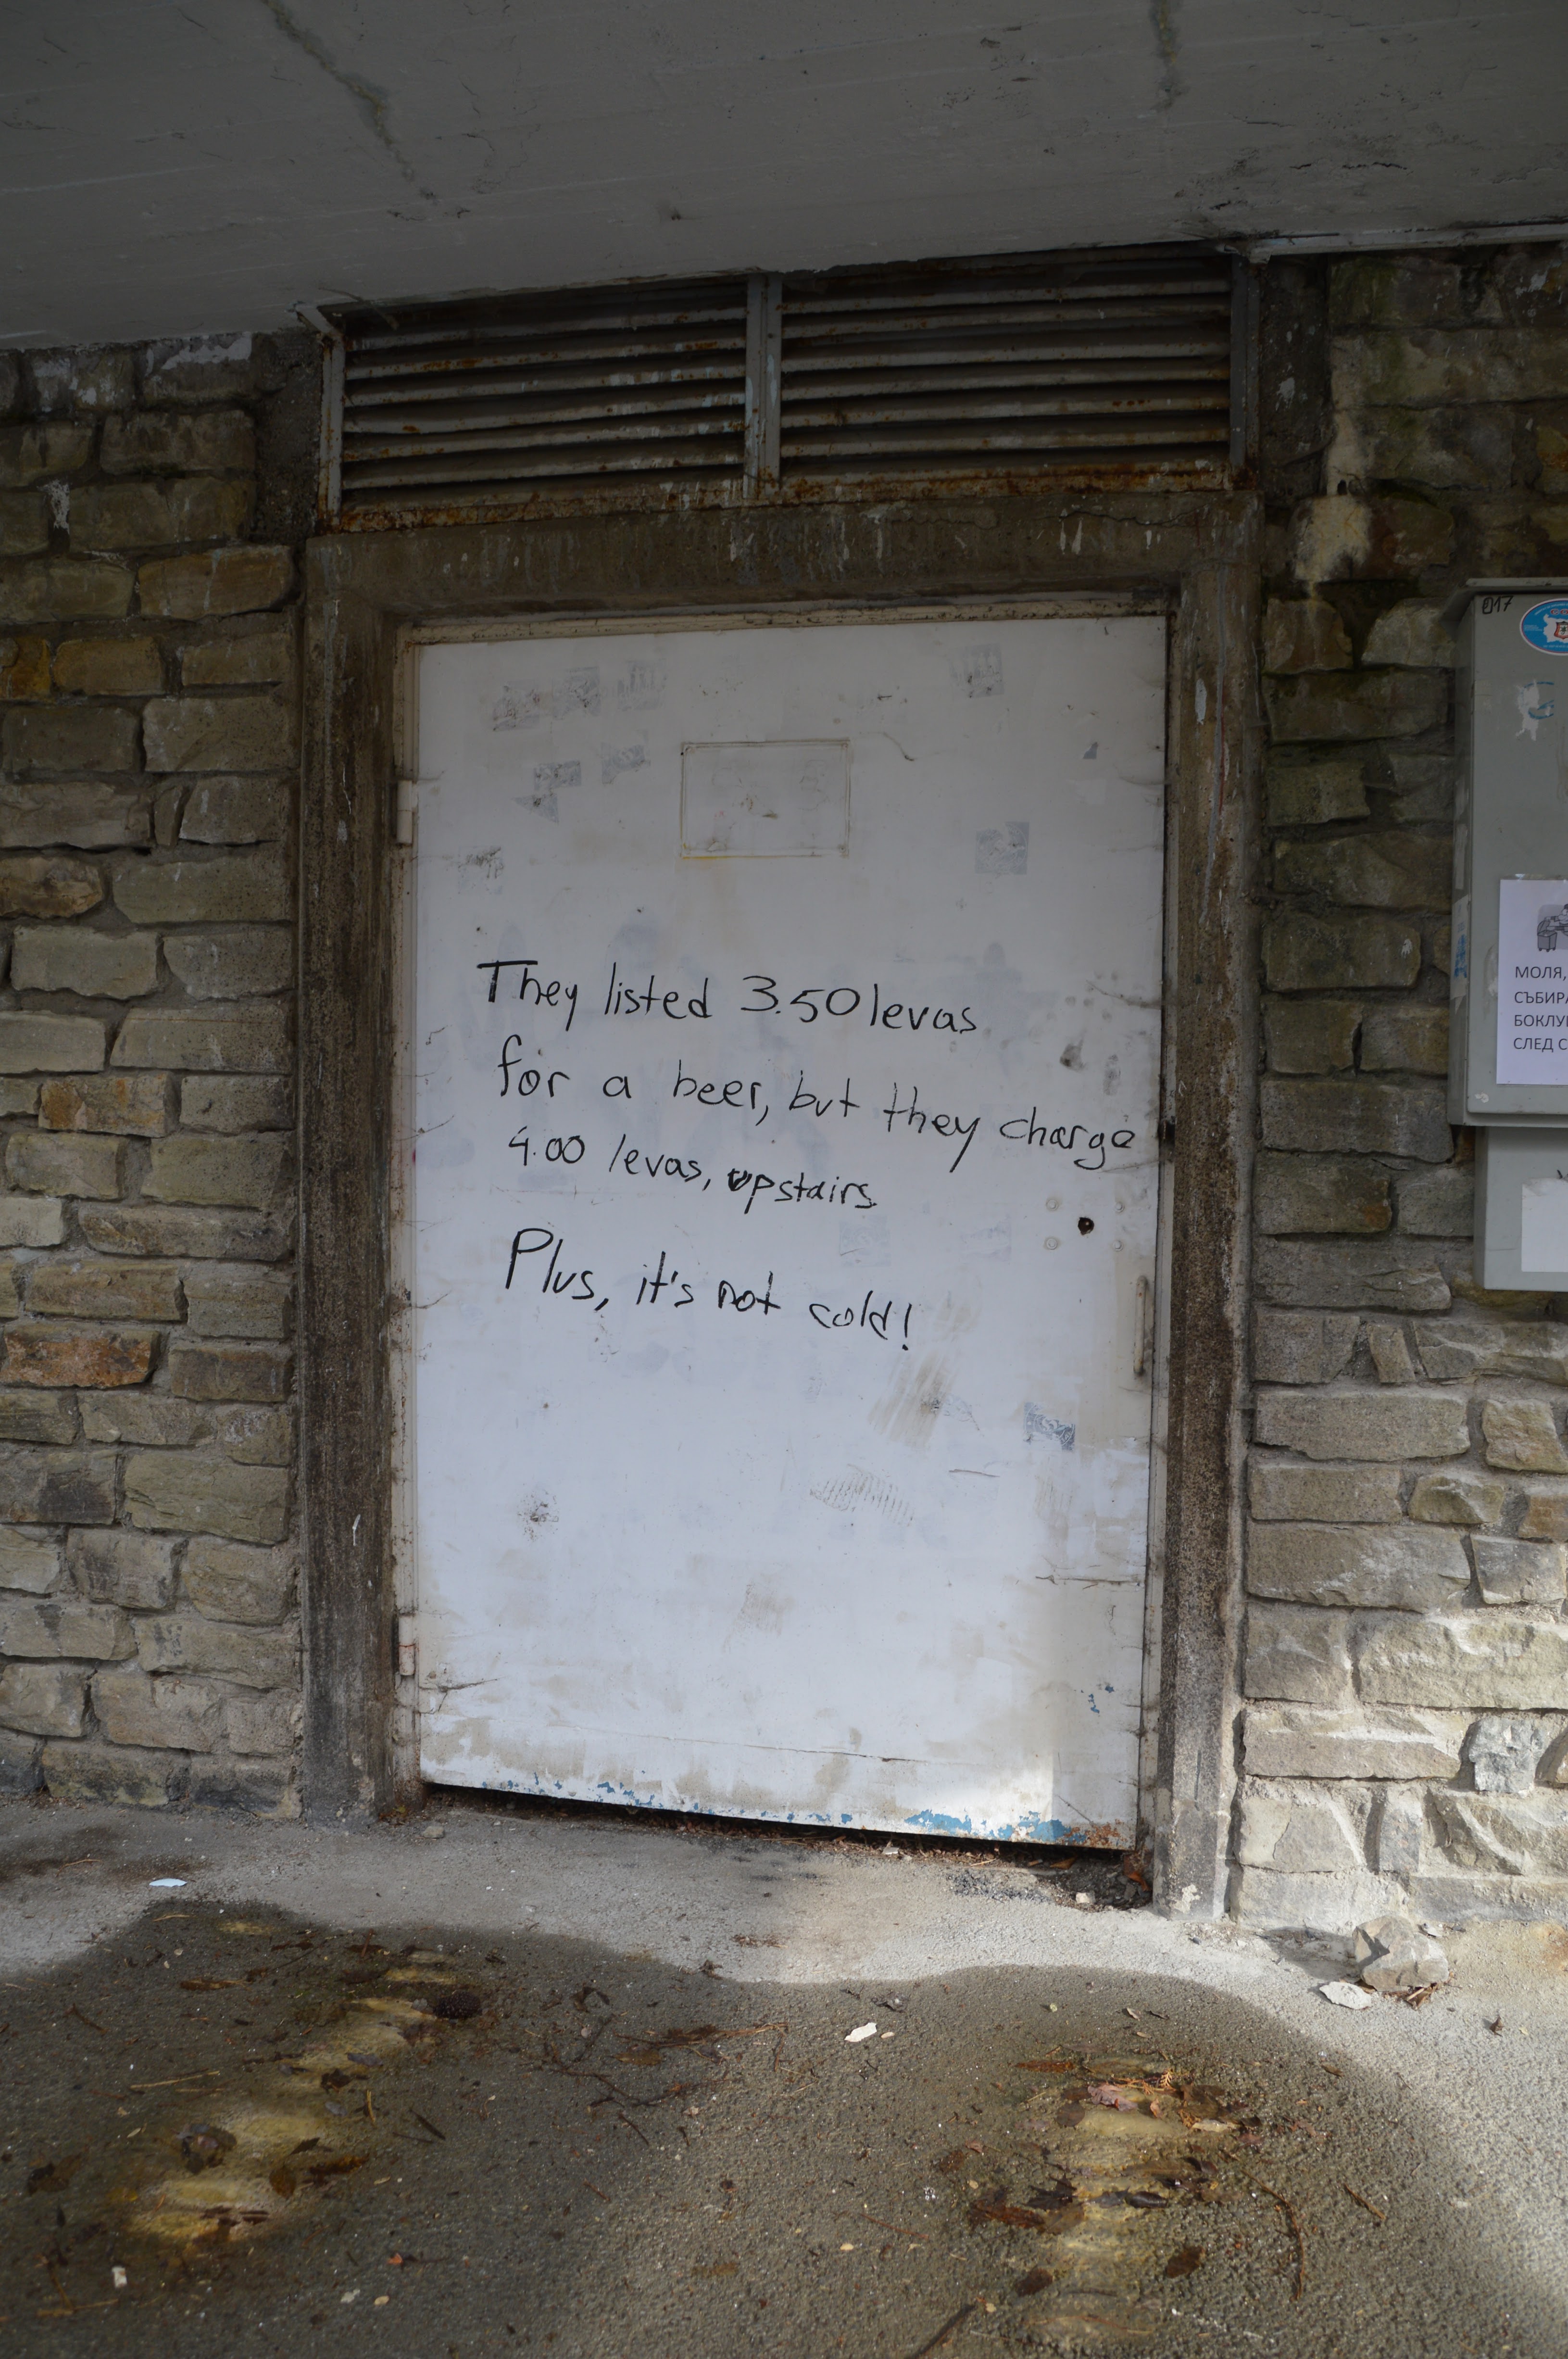 They listed 3.50 levas
for a beer, but they charge
4.00 levas, upstairs.
Plus, it's not cold!
017
МОЛЯ,
СЪБИРА
БОКЛУ
СЛЕД С